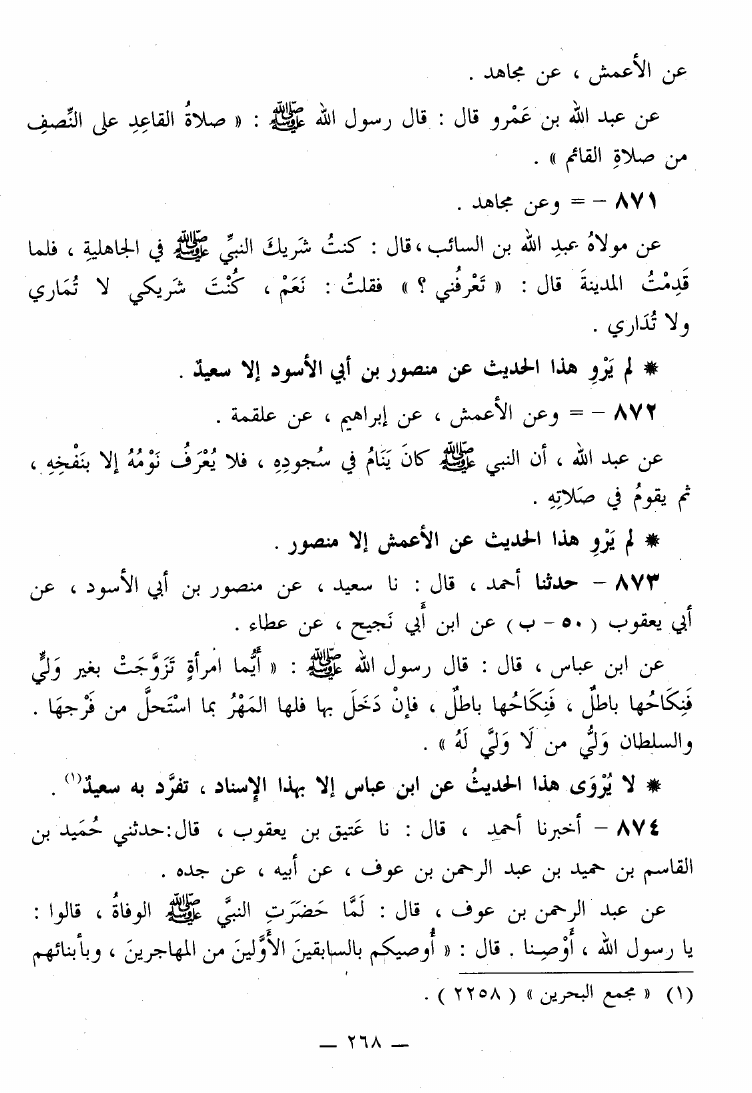 عن الأعمش ، عن مجاهد .
عن عبد الله بن عَمْرو قال : قال رسول الله ﷺ : « صلاةُ القاعِدِ على النِّصفِ
من صلاةِ القائم » .
٨٧١ – = وعن مجاهد .
عن مولاهُ عبدِ الله بن السائب ، قال : كنتُ شَريكَ النبيِّ ﷺ في الجاهليةِ ، فلما
قَدِمْتُ المدينةَ قال : « تَعْرفُني ؟ » فقلتُ : نَعَمْ ، كُنْتَ شَريكي لا تُمَاري
ولا تُدَاري .
* لم يَرْوِ هذا الحديث عن منصور بن أبي الأسود إلا سعيدٌ .
٨٧٢ – = وعن الأعمش ، عن إبراهيم ، عن علقمة .
عن عبد الله ، أن النبي ﷺ كانَ يَنَامُ في سُجودِهِ ، فلا يُعْرَفُ نَوْمُهُ إلا بنَفْخِهِ ،
ثم يقومُ في صَلاتِهِ .
* لم يَرْوِ هذا الحديث عن الأعمش إلا منصور .
٨٧٣ – حدثنا أحمد ، قال : نا سعيد ، عن منصور بن أبي الأسود ، عن
أبي يعقوب ( ٥٠ – ب ) عن ابن أَبي نَجيح ، عن عطاء .
عن ابن عباس ، قال : قال رسول الله ﷺ : « أَيُّما امرأةٍ تَزَوَّجَتْ بغير وَليٍّ
فَنِكَاحُها باطلٌ ، فَنِكَاحُها باطلٌ ، فإنْ دَخَلَ بها فلها المَهْرُ بما اسْتَحلَّ من فَرْجهَا .
والسلطان وَليُّ من لَا وَليَّ لَهُ » .
* لا يُرْوَى هذا الحديثُ عن ابن عباس إلا بهذا الإسناد ، تفرَّد به سعيدٌ(١) .
٨٧٤ – أخبرنا أحمد ، قال : نا عَتيق بن يعقوب ، قال:حدثني حُمَيد بن
القاسم بن حميد بن عبد الرحمن بن عوف ، عن أبيه ، عن جده .
عن عبد الرحمن بن عوف ، قال : لَمَّا حَضَرَتِ النبيَّ ﷺ الوفاةُ ، قالوا :
يا رسول الله ، أَوْصِنا . قال : « أُوصيكم بالسابقينَ الأَوَّلينَ من المهاجرينَ ، وبأبنائهم
(١) « مجمع البحرين » ( ٢٢٥٨ ) .
– ٢٦٨ –